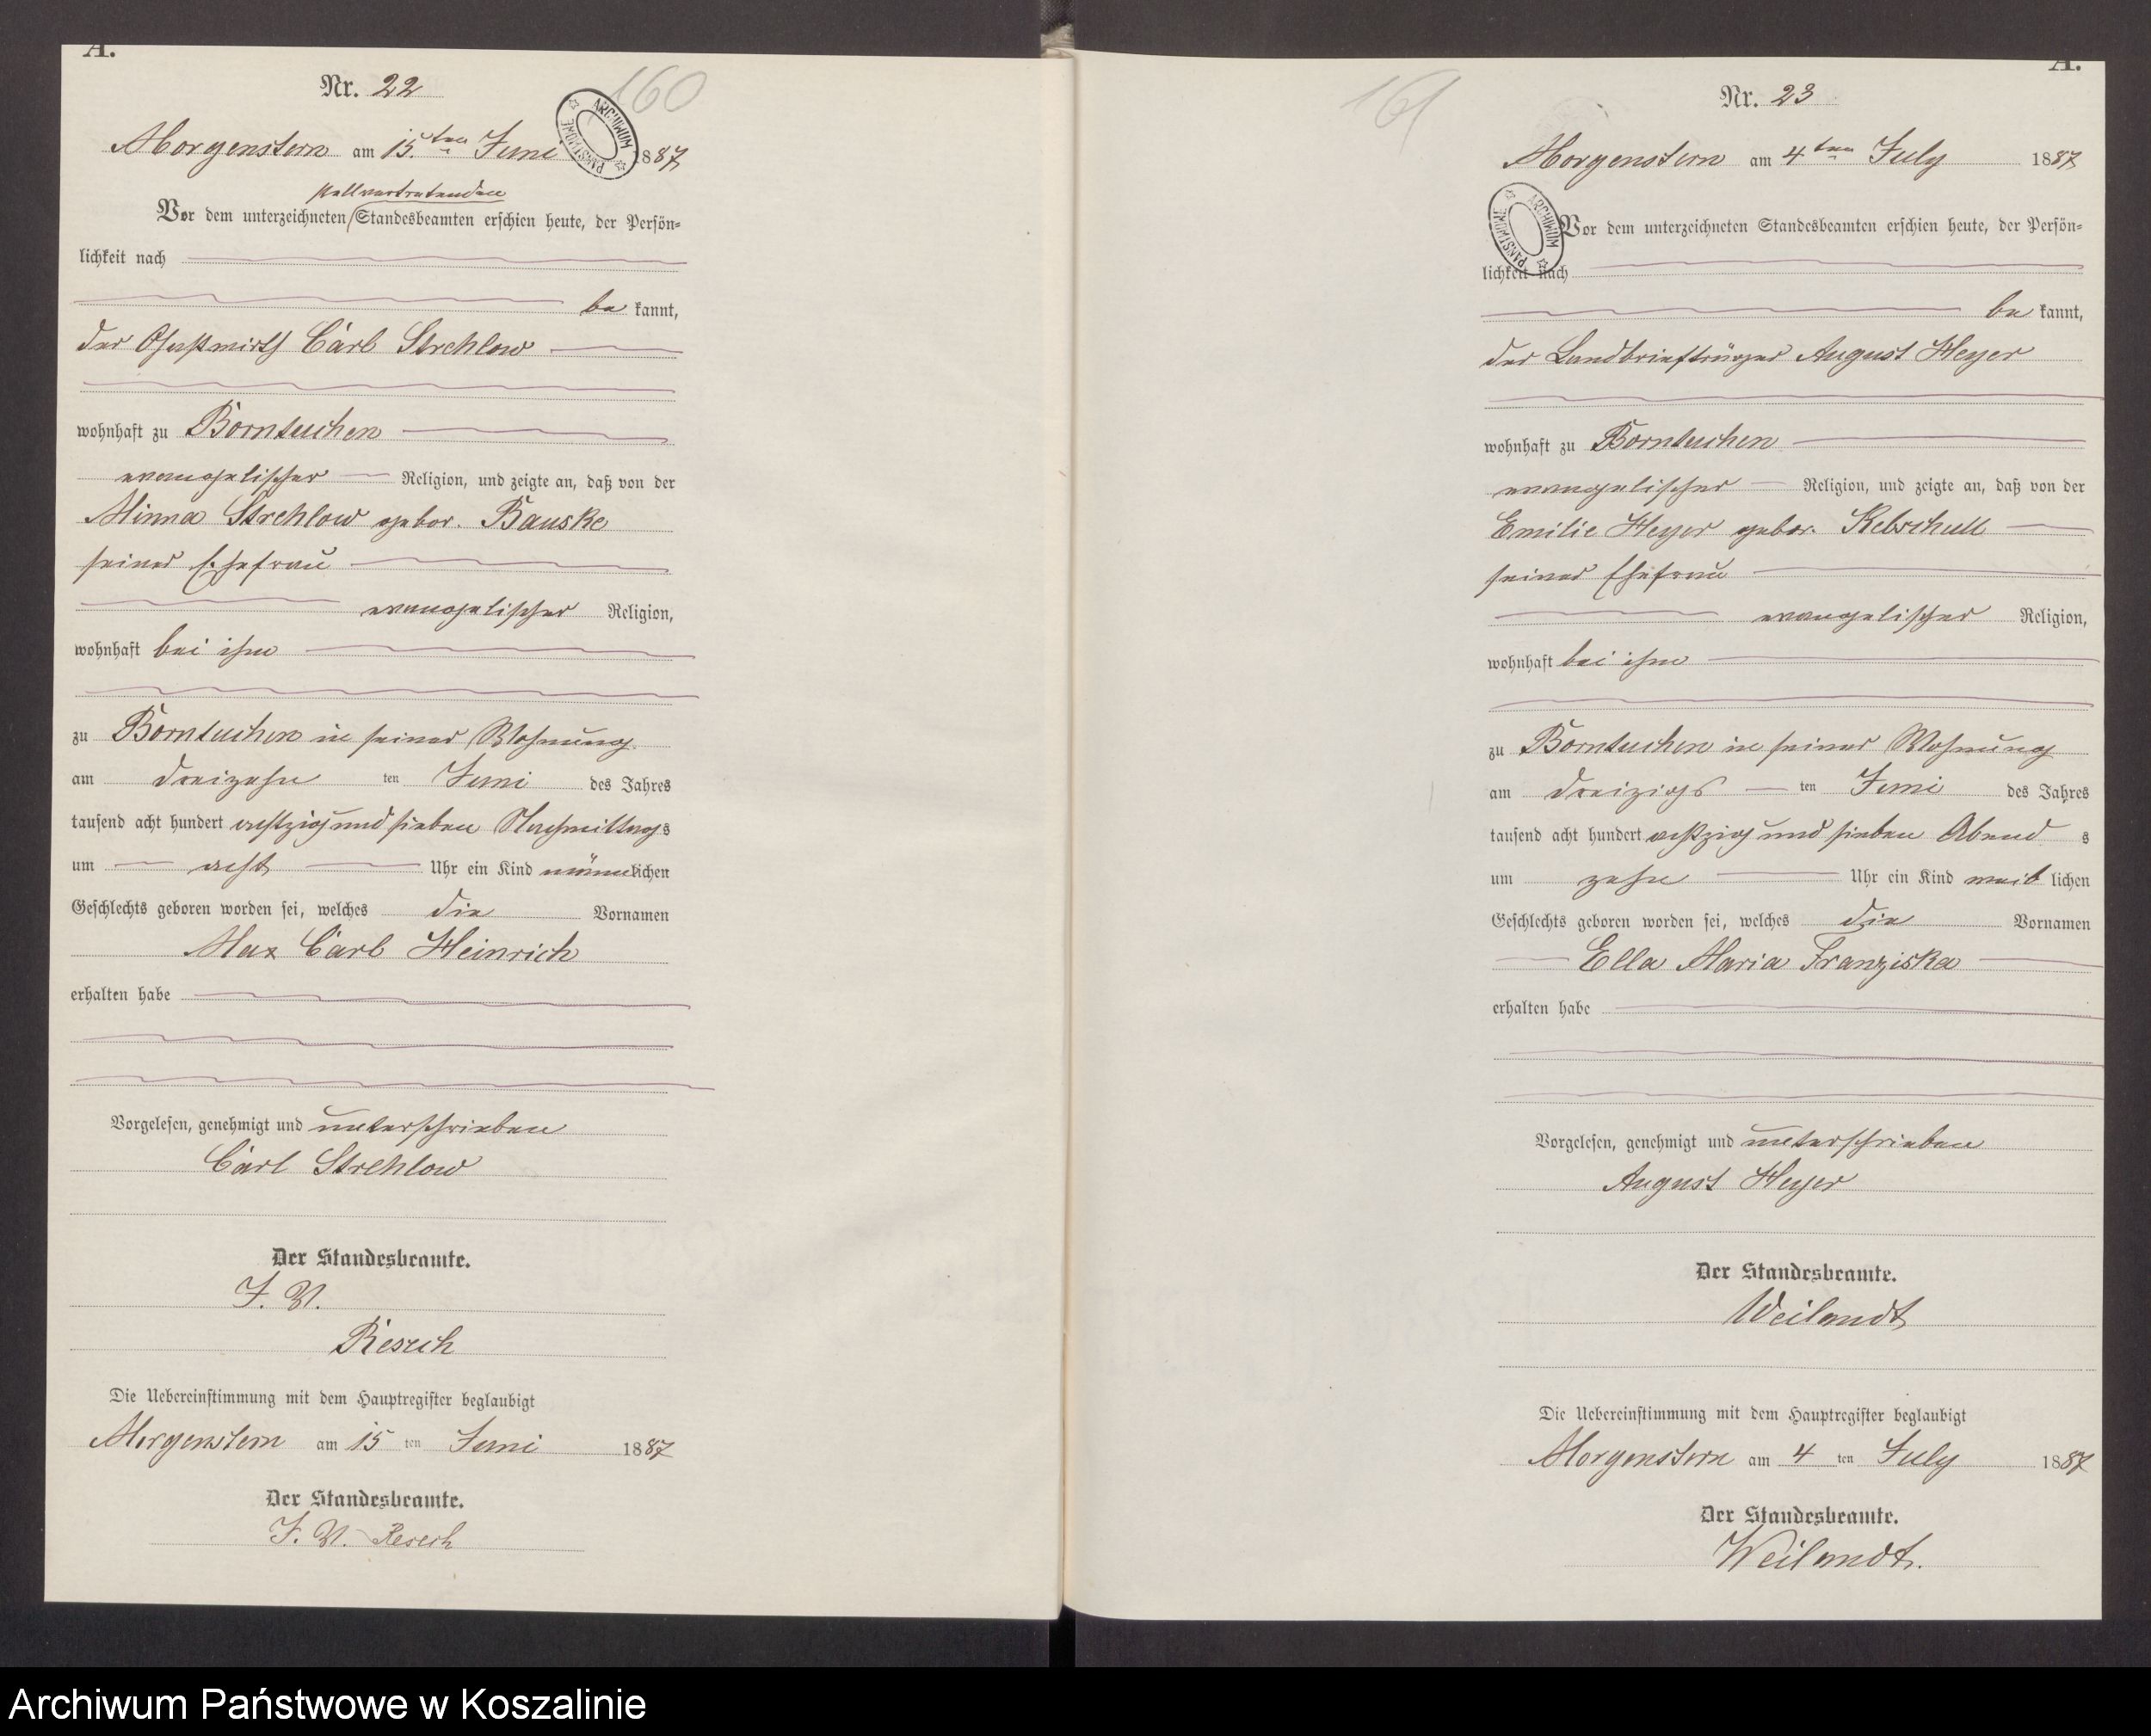 A.
Nr. 22
160
ARCHIWUM PAŃSTWOWE
Morgenstern am 15. ten Juni 1887
stellvertretenden
Vor dem unterzeichneten Standesbeamten erschien heute, der Persön=
lichkeit nach
be kannt,
der Gastwirth Carl Strehlow
wohnhaft zu Borntuchen
evangelischer Religion, und zeigte an, daß von der
Minna Strehlow gebor. Bauske
seiner Ehefrau
evangelischer Religion,
wohnhaft bei ihm
zu Borntuchen in seiner Wohnung
am dreizehn ten Juni des Jahres
tausend acht hundert achtzig und sieben Nachmittags
um acht Uhr ein Kind männlichen
Geschlechts geboren worden sei, welches die Vornamen
Max Carl Heinrich
erhalten habe
Vorgelesen, genehmigt und unterschrieben
Carl Strehlow
Der Standesbeamte.
J. V.
Resech
Die Uebereinstimmung mit dem Hauptregister beglaubigt
Morgenstern am 15 ten Juni 1887
Der Standesbeamte.
J. V. Resech
A.
Nr. 23
161
Morgenstern am 4 ten July 1887
ARCHIWUM PAŃSTWOWE
Vor dem unterzeichneten Standesbeamten erschien heute, der Persön=
lichkeit nach
be kannt,
der Landbriefträger August Heyer
wohnhaft zu Borntuchen
evangelischer Religion, und zeigte an, daß von der
Emilie Heyer gebor. Rebschull
seiner Ehefrau
evangelischer Religion,
wohnhaft bei ihm
zu Borntuchen in seiner Wohnung
am dreizigs ten Juni des Jahres
tausend acht hundert achtzig und sieben Abend s
um zehn Uhr ein Kind weib lichen
Geschlechts geboren worden sei, welches die Vornamen
Ella Maria Franziska
erhalten habe
Vorgelesen, genehmigt und unterschrieben
August Heyer
Der Standesbeamte.
Weilandt
Die Uebereinstimmung mit dem Hauptregister beglaubigt
Morgenstern am 4 ten July 1887
Der Standesbeamte.
Weilandt.
Archiwum Państwowe w Koszalinie